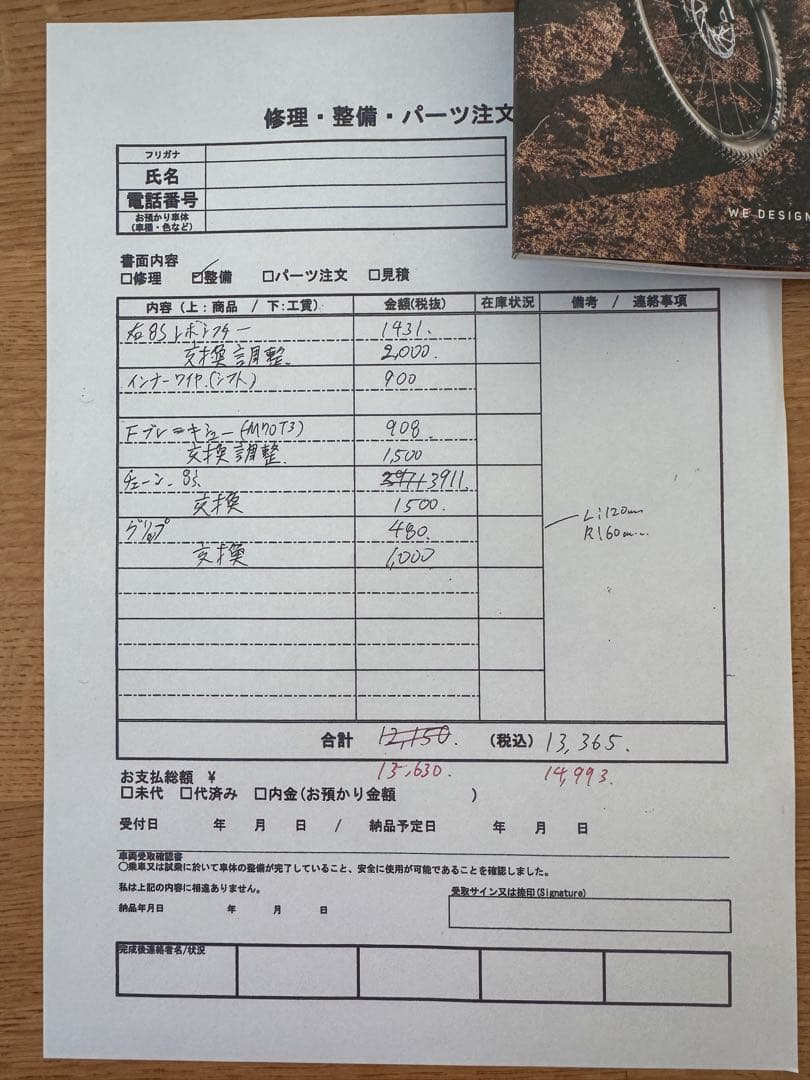 修理・整備・パーツ注文
WE DESIGN
フリガナ
氏名
電話番号
お預かり車体
(車種・色など)
書面内容
□修理 ☑整備 □パーツ注文 □見積
内容(上:商品 / 下:工賃) 金額(税抜) 在庫状況 備考 / 連絡事項
右8Sレボシフター 1431.
交換調整. 2,000.
インナーワイヤ.(シフト) 900
Fブレーキシュー(M70T3) 908.
交換調整. 1,500
チェーン. 8s 3911.
交換 1500.
グリップ 480. L:120mm
R:60mm
交換 1,000
合計 12,150. (税込) 13,365.
13,630. 14,993.
お支払総額 ¥
□未代 □代済み □内金(お預かり金額 )
受付日 年 月 日 / 納品予定日 年 月 日
車両受取確認書
○乗車又は試乗に於いて車体の整備が完了していること、安全に使用が可能であることを確認しました。
私は上記の内容に相違ありません。
受取サイン又は捺印(Signature)
納品年月日 年 月 日
完成後連絡者名/状況